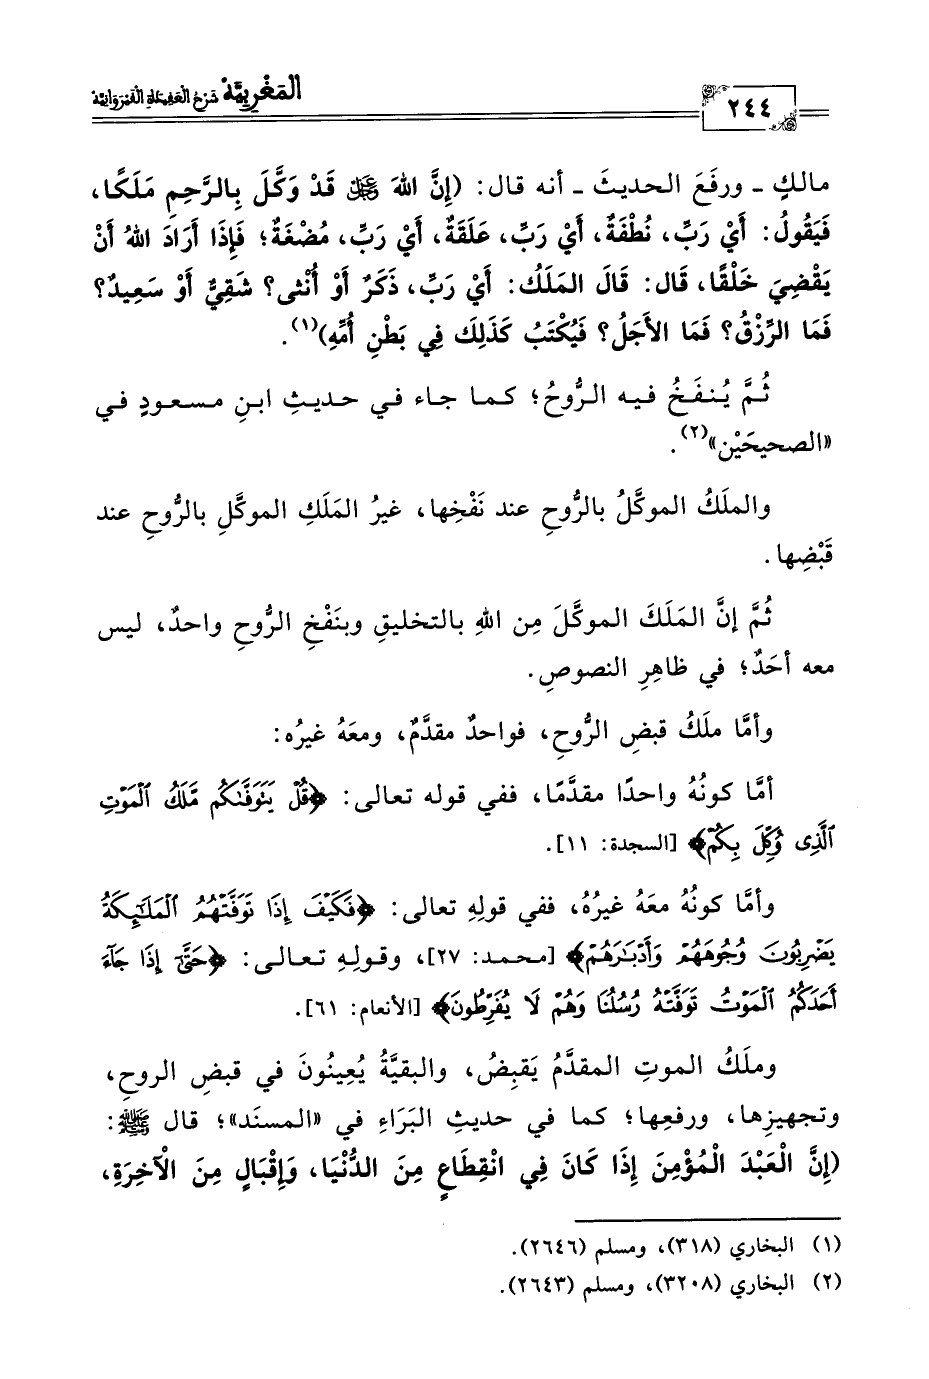 ٢٤٤
المَغْرِبِيَّة شَرْحُ العَقِيدَةِ القَيْرَوَانِيَّة
مالكٍ ـ ورفَعَ الحديثَ ـ أنه قال: (إِنَّ اللهَ ﷻ قَدْ وَكَّلَ بِالرَّحِمِ مَلَكًا،
فَيَقُولُ: أَيْ رَبِّ، نُطْفَةٌ، أَيْ رَبِّ، عَلَقَةٌ، أَيْ رَبِّ، مُضْغَةٌ؛ فَإِذَا أَرَادَ اللهُ أَنْ
يَقْضِيَ خَلْقًا، قَال: قَالَ المَلَكُ: أَيْ رَبِّ، ذَكَرٌ أَوْ أُنْثى؟ شَقِيٌّ أَوْ سَعِيدٌ؟
فَمَا الرِّزْقُ؟ فَمَا الأَجَلُ؟ فَيُكْتَبُ كَذَلِكَ فِي بَطْنِ أُمِّهِ)(١).
ثُمَّ يُنفَخُ فيه الرُّوحُ؛ كما جاء في حديثِ ابنِ مسعودٍ في
«الصحيحَيْن»(٢).
والملَكُ الموكَّلُ بالرُّوحِ عند نَفْخِها، غيرُ المَلَكِ الموكَّلِ بالرُّوحِ عند
قَبْضِها.
ثُمَّ إنَّ المَلَكَ الموكَّلَ مِن اللهِ بالتخليقِ وبنَفْخِ الرُّوحِ واحدٌ، ليس
معه أحَدٌ؛ في ظاهِرِ النصوصِ.
وأمَّا ملَكُ قبضِ الرُّوحِ، فواحدٌ مقدَّمٌ، ومعَهُ غيرُه:
أمَّا كونُهُ واحدًا مقدَّمًا، ففي قوله تعالى: ﴿قُلْ يَتَوَفَّىٰكُم مَّلَكُ ٱلْمَوْتِ
ٱلَّذِى وُكِّلَ بِكُمْ﴾ [السجدة: ١١].
وأمَّا كونُهُ معَهُ غيرُهُ، ففي قولِهِ تعالى: ﴿فَكَيْفَ إِذَا تَوَفَّتْهُمُ ٱلْمَلَٰٓئِكَةُ
يَضْرِبُونَ وُجُوهَهُمْ وَأَدْبَٰرَهُمْ﴾ [محمد: ٢٧]، وقولِهِ تعالى: ﴿حَتَّىٰٓ إِذَا جَآءَ
أَحَدَكُمُ ٱلْمَوْتُ تَوَفَّتْهُ رُسُلُنَا وَهُمْ لَا يُفَرِّطُونَ﴾ [الأنعام: ٦١].
وملَكُ الموتِ المقدَّمُ يَقبِضُ، والبقيَّةُ يُعِينُونَ في قبضِ الروحِ،
وتجهيزِها، ورفعِها؛ كما في حديثِ البَرَاءِ في «المسنَد»؛ قال ﷺ:
(إِنَّ الْعَبْدَ الْمُؤْمِنَ إِذَا كَانَ فِي انْقِطَاعٍ مِنَ الدُّنْيَا، وَإِقْبَالٍ مِنَ الْآخِرَةِ،
(١) البخاري (٣١٨)، ومسلم (٢٦٤٦).
(٢) البخاري (٣٢٠٨)، ومسلم (٢٦٤٣).